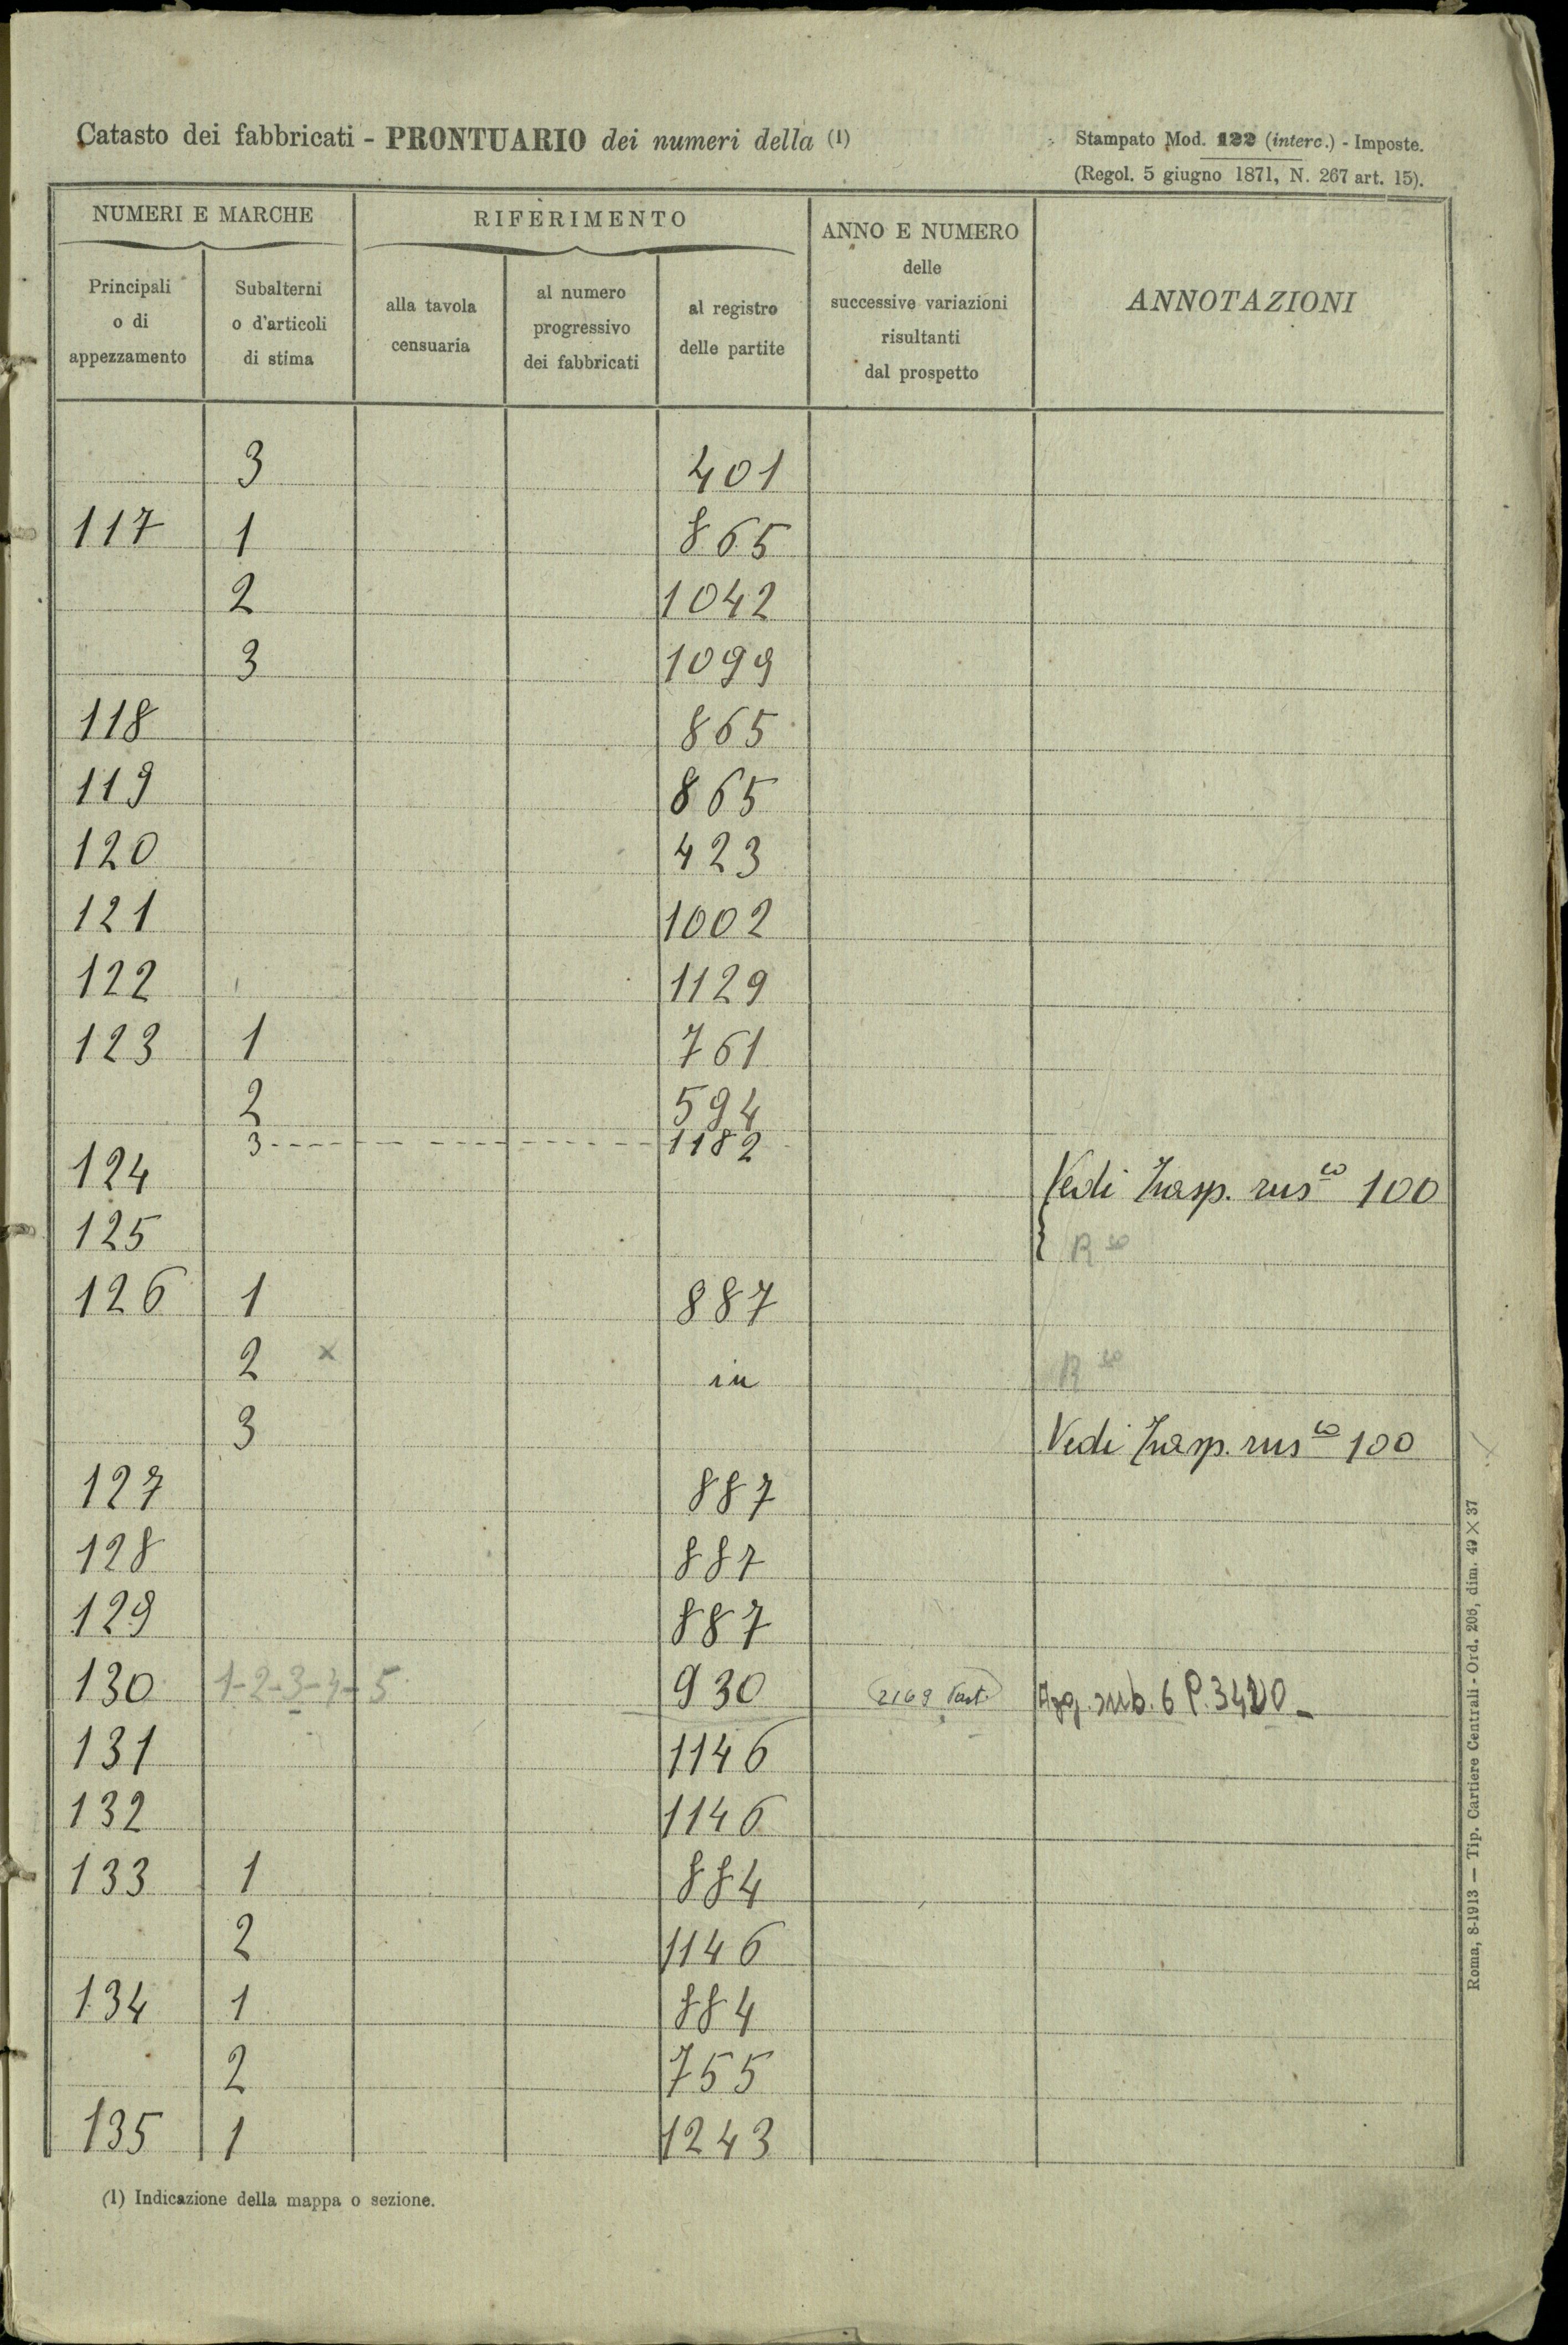 Catasto dei fabbricati - PRONTUARIO dei numeri della (1)
Stampato Mod. 122 (interc.) - Imposte.
(Regol. 5 giugno 1871, N. 267 art. 15).
NUMERI E MARCHE
RIFERIMENTO
ANNO E NUMERO
delle
successive variazioni
risultanti
dal prospetto
ANNOTAZIONI
Principali
o di
appezzamento
Subalterni
o d'articoli
di stima
alla tavola
censuaria
al numero
progressivo
dei fabbricati
al registro
delle partite
3 401
117 1 865
2 1042
3 1099
118 865
119 865
120 423
121 1002
122 1129
123 1 761
2 594
3 - - - - 1182
124 Vedi rusco 100
125 R so
126 1 887
2 x in R so
3 Vedi rusco 100
127 887
128 887
129 887
130 1-2-3-4-5 930 (2169 ) Agg. sub. 6 P. 3420
131 1146
132 1146
133 1 884
2 1146
134 1 884
2 755
135 1 1243
(1) Indicazione della mappa o sezione.
Roma, 8-1913 — Tip. Cartiere Centrali - Ord. 206, dim. 49 × 37